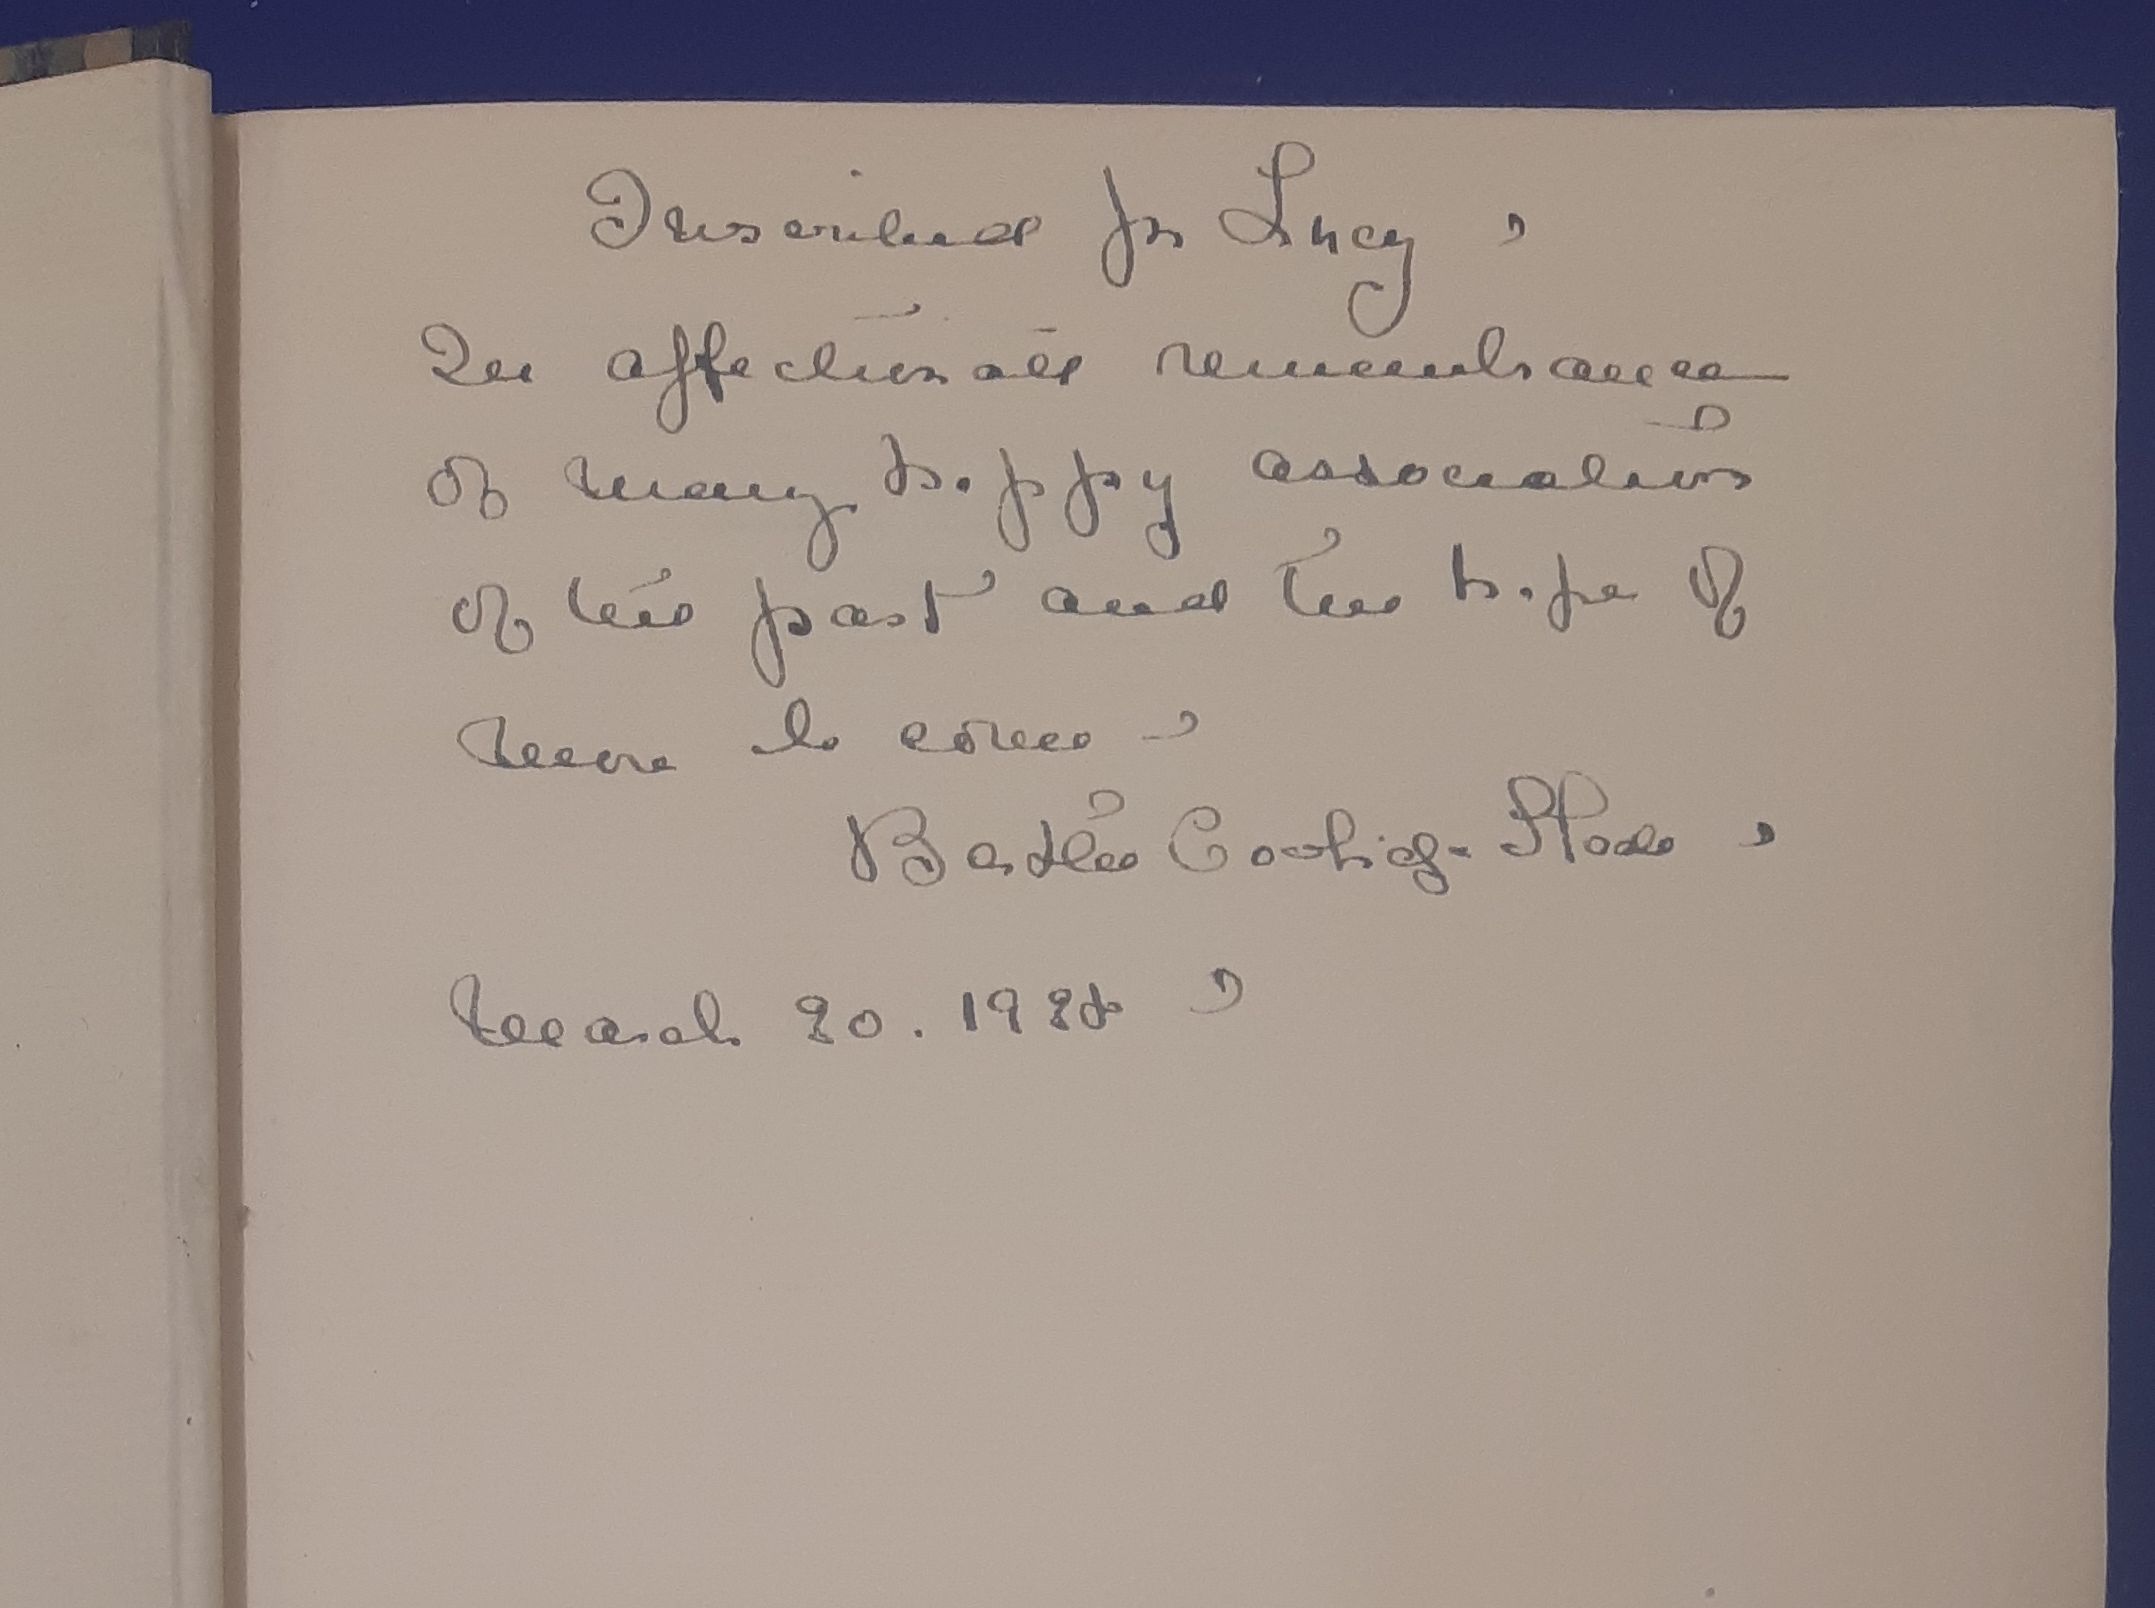 Inscribed for Lucy,
In affectionate remembrance
of many happy associations
of the past and the hope of
more to come -
Bertha Coolidge Slade,
March